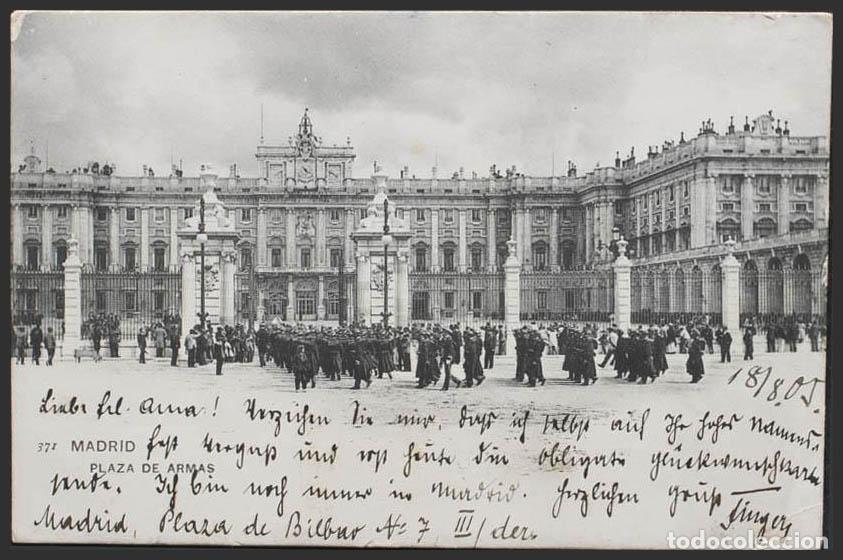 18/8.05.
Liebe frl. Anna! Verzeihen Sie mir, daß ich selbst auf Ihr hohes Namens-
371 MADRID fest vergaß und erst heute die obligate Glückwunschkarte
PLAZA DE ARMAS
sende. Ich bin noch immer in Madrid. Herzlichen Gruß
Madrid, Plaza de Bilbao No 7, III/der.
todocoleccion.net